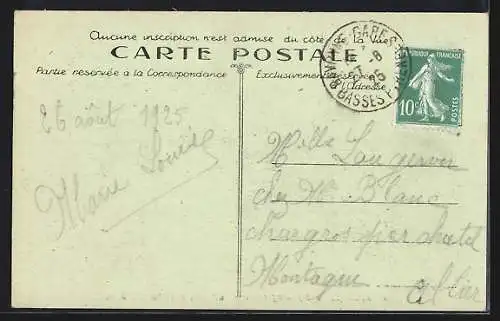 Aucune inscription n'est admise du côté de la Vue
CARTE POSTALE
Partie réservée à la Correspondance
Exclusivement
l'Adresse
GARE
BASSES
8
25
REPUBLIQUE FRANCAISE
10c
POSTES
26 août 1925
Marie Louise
Mlle
chez Mr Blanc
par chatel
Montagne Allier